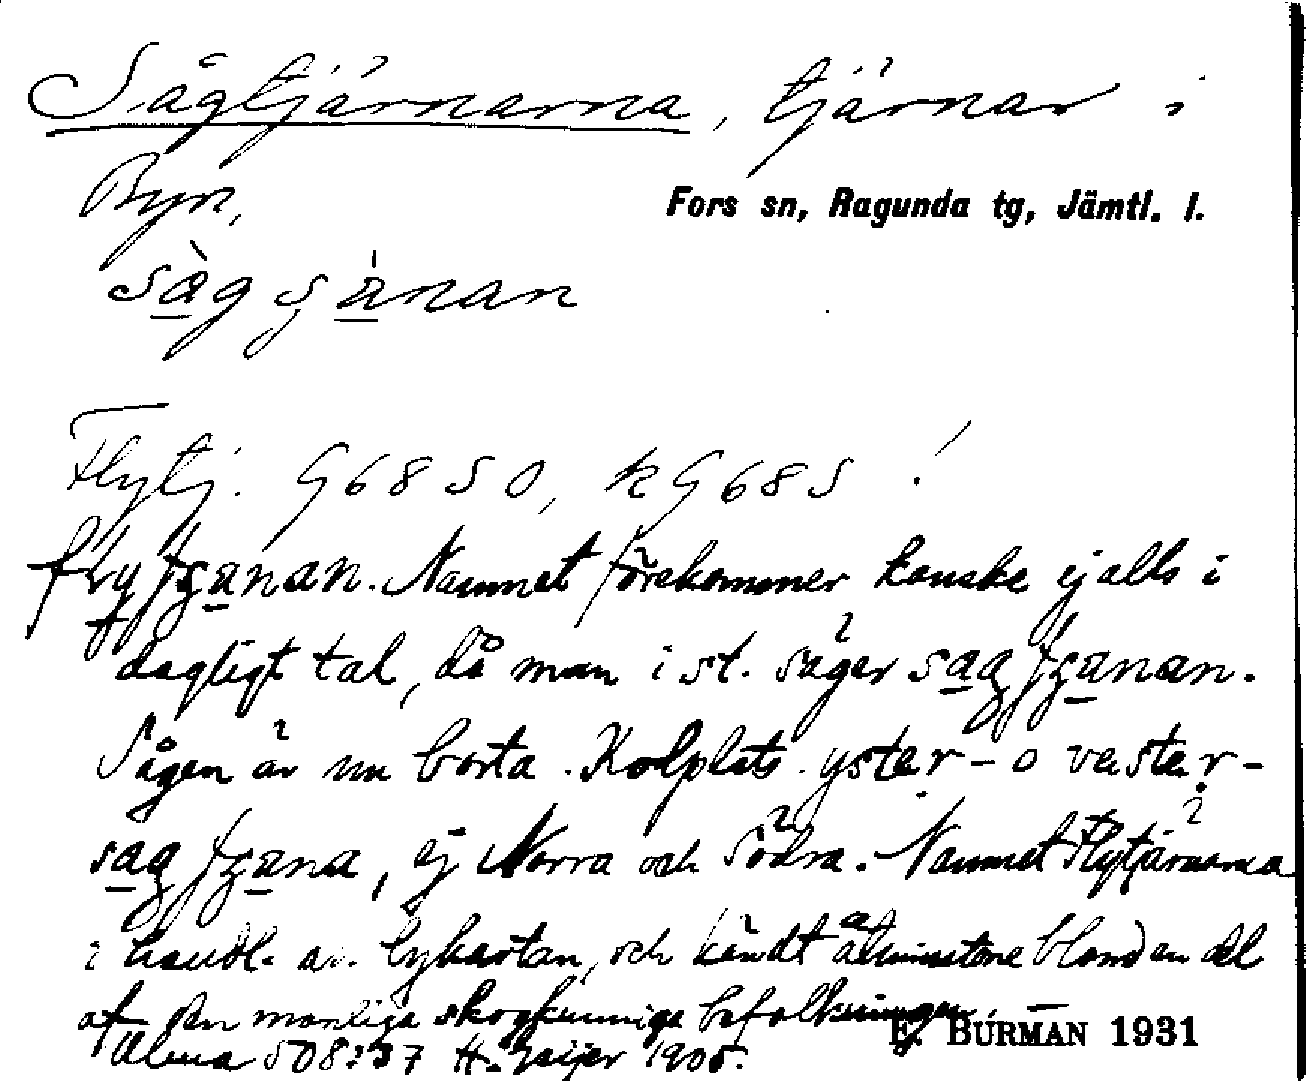 Sågtjärnarna, tjärnar i
Byn,
Fors sn, Ragunda tg, Jämtl. l.
sàg sjánan
Flytj. G68 S O, k G68 S !
Namnet förekommer kanske ej alls i
dagligt tal, då man i st. säger
Sågen är nu borta. Kolplats. yster- o vester-
, ej Norra och Södra. Namnet Flytjärnarna
i handl. av. bykartan, och kändt åtminstone bland en del
af den manliga skogkunniga befolkningen
Alma 508:37 H. Geijer 1905.
E. BURMAN 1931